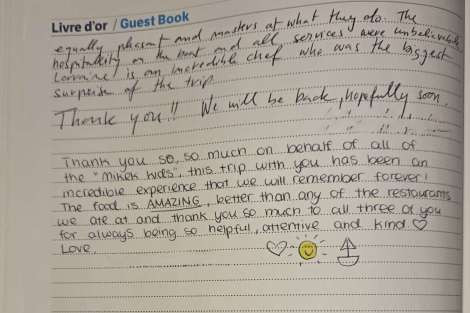 Livre d'or / Guest Book
equally pleasant and masters at what they do. The
hospitality on the boat and all services were unbelievable.
Lorraine is an incredible chef who was the biggest
surprise of the trip.
Thank you!! We will be back, hopefully soon.
Thank you so, so much on behalf of all of
the kids", this trip with you has been an
incredible experience that we will remember forever!
The food is AMAZING, better than any of the restaurants
we ate at and thank you so much to all three of you
for always being so helpful, attentive and kind ♡
Love